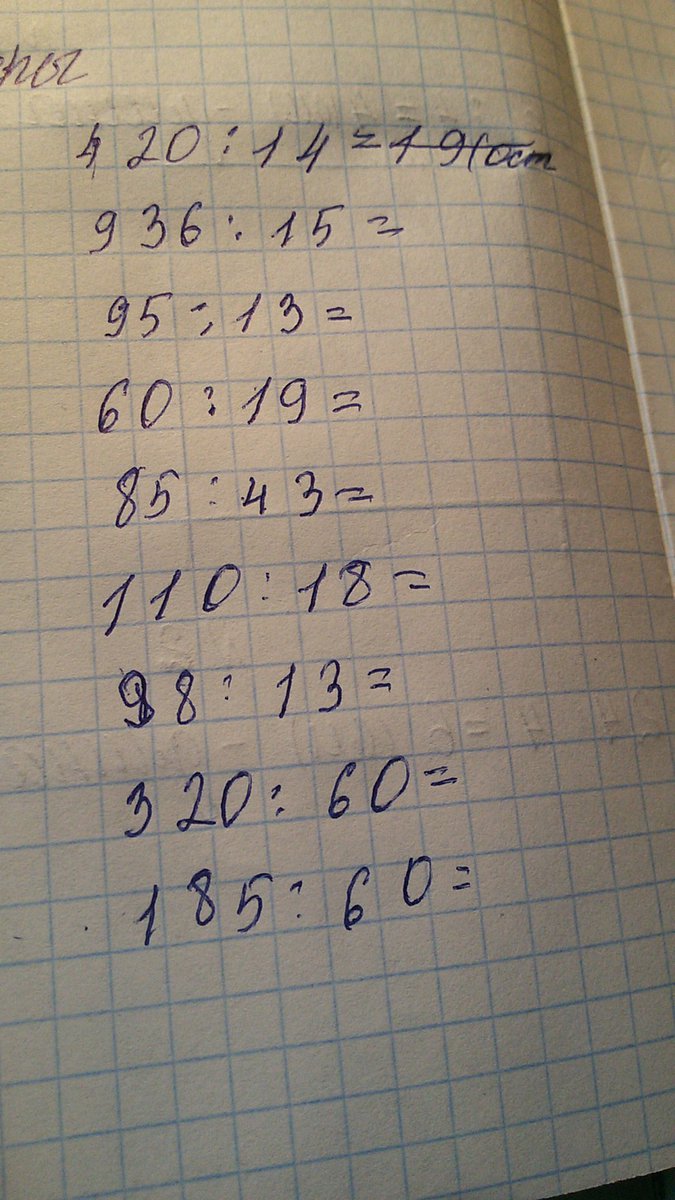 420 : 14 = 19(ост
936 : 15 =
95 : 13 =
60 : 19 =
85 : 43 =
110 : 18 =
98 : 13 =
320 : 60 =
185 : 60 =